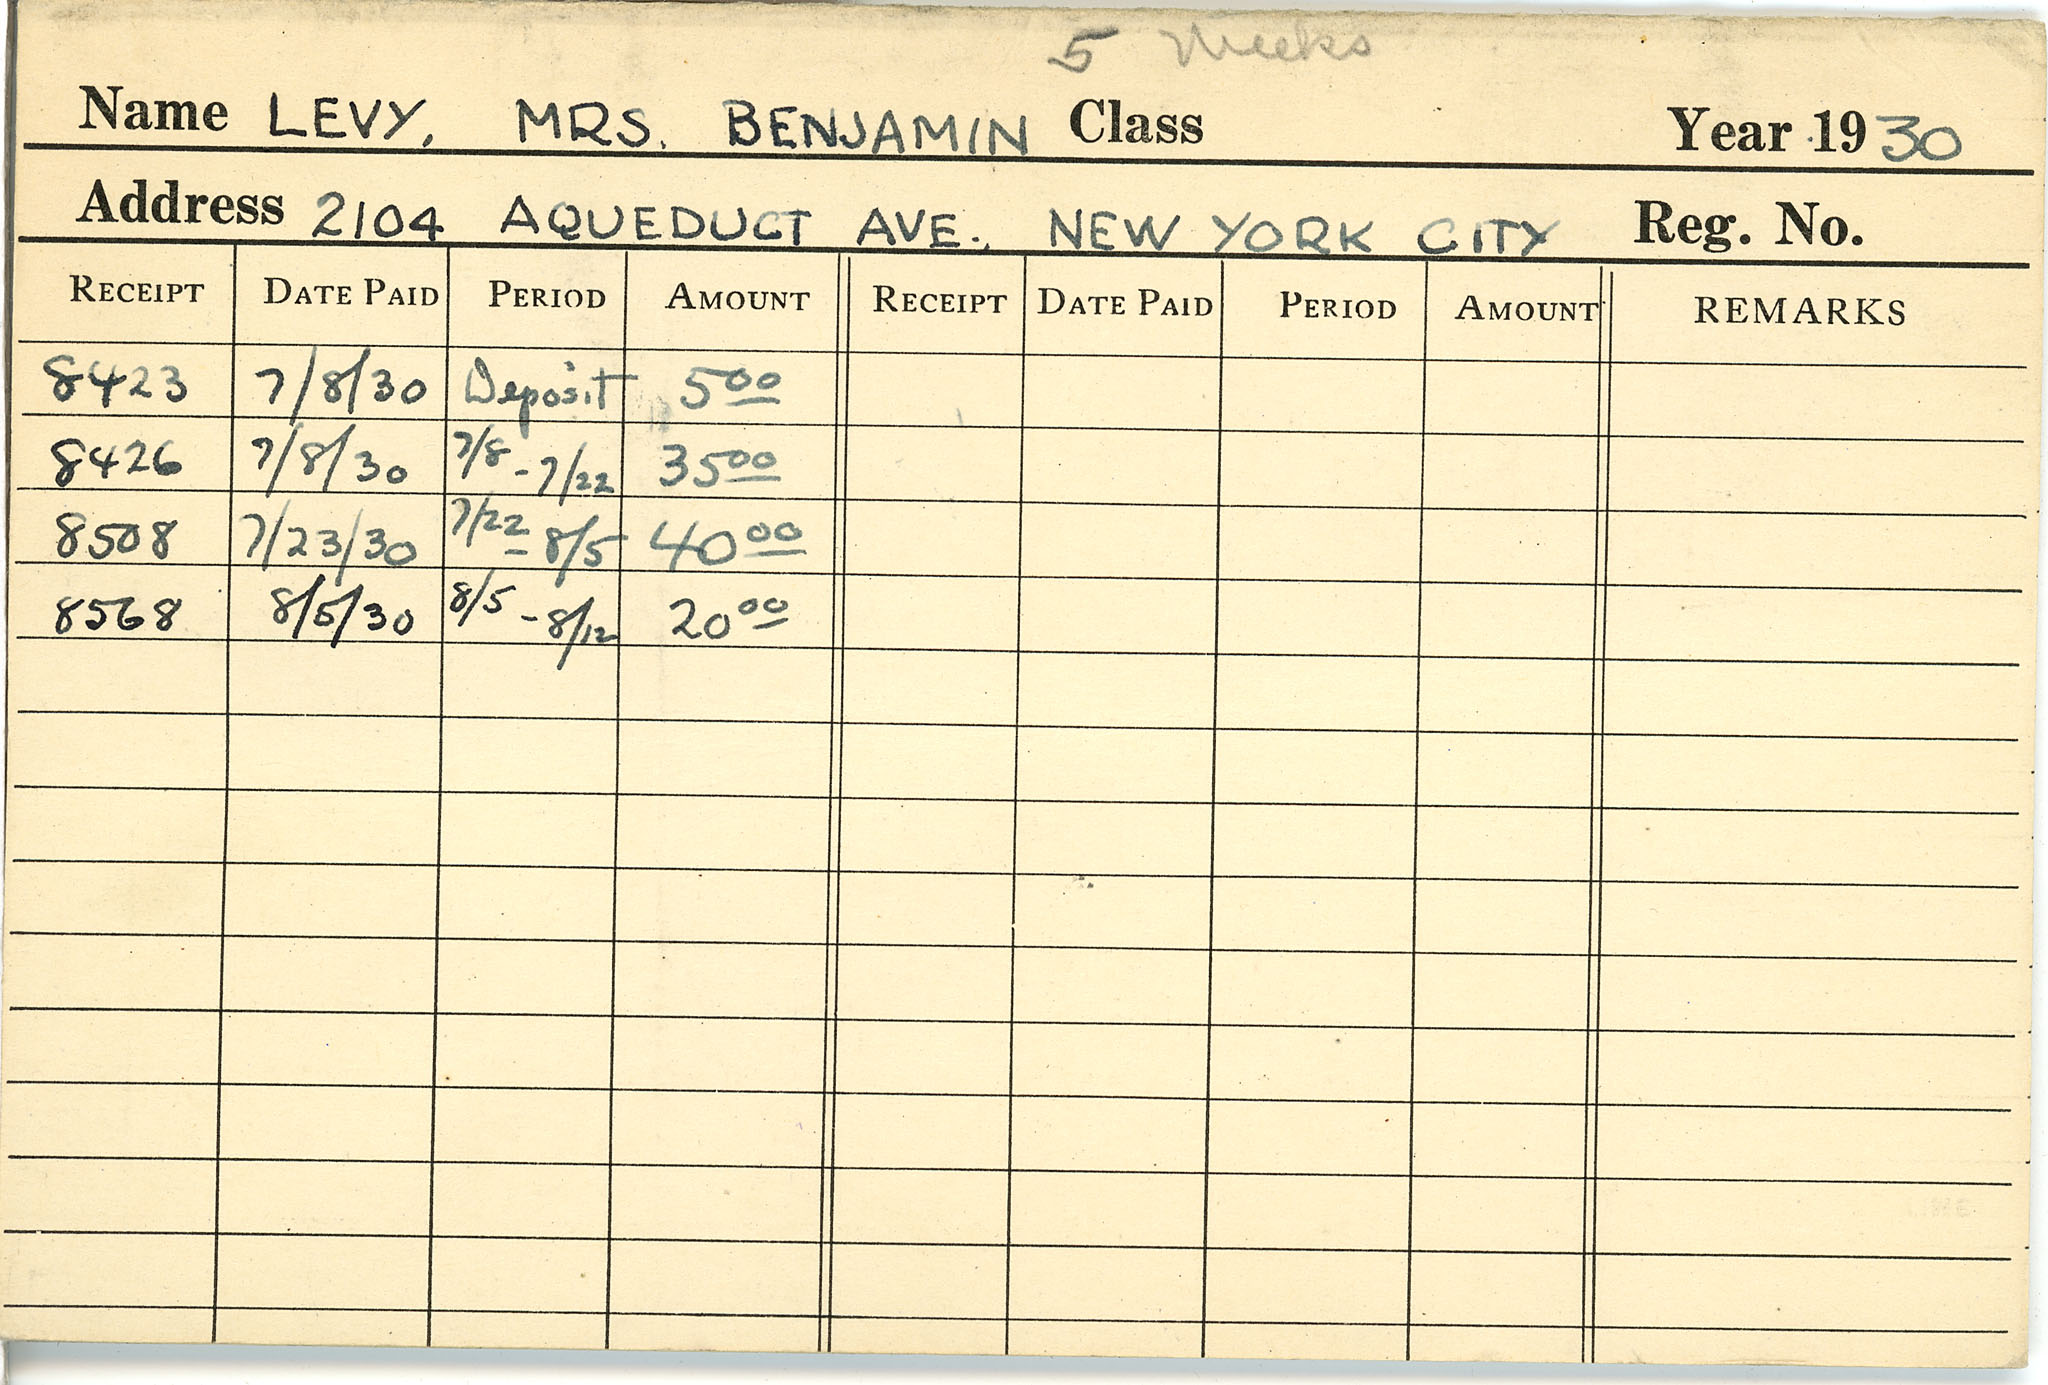 5 Weeks
Name LEVY, MRS. BENJAMIN Class Year 1930
Address 2104 AQUEDUCT AVE., NEW YORK CITY Reg. No.
RECEIPT DATE PAID PERIOD AMOUNT RECEIPT DATE PAID PERIOD AMOUNT REMARKS
8423 7/8/30 Deposit 5 00
8426 7/8/30 7/8 - 7/22 35 00
8508 7/23/30 7/22 - 8/5 40 00
8568 8/5/30 8/5 - 8/12 20 00